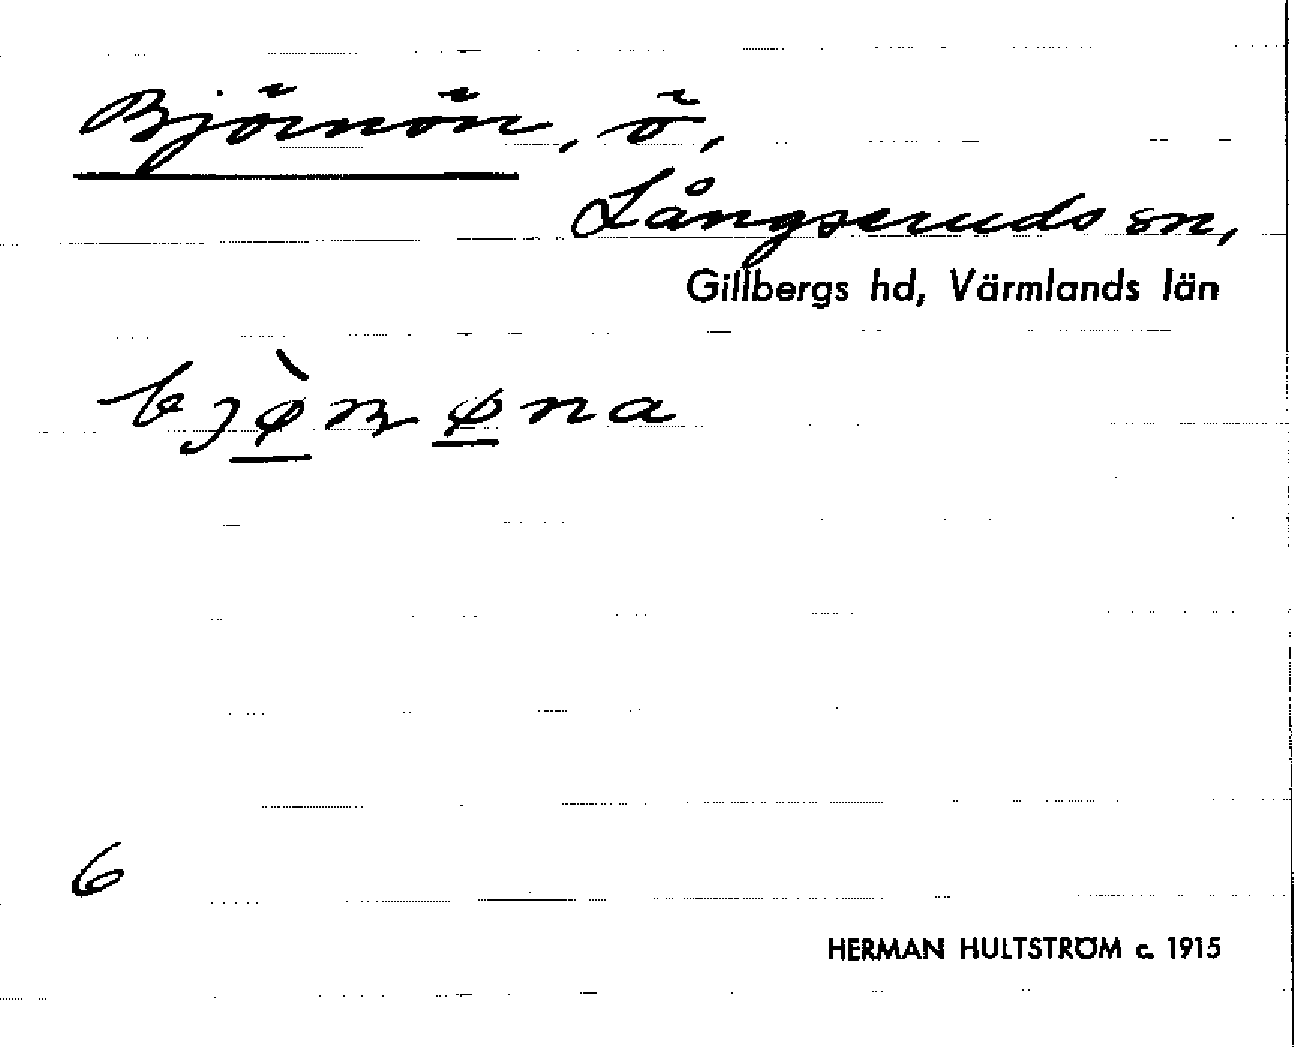 Björnön, ö,
Långseruds sn,
Gillbergs hd, Värmlands län
bjø̀nøna
6
HERMAN HULTSTRÖM c. 1915